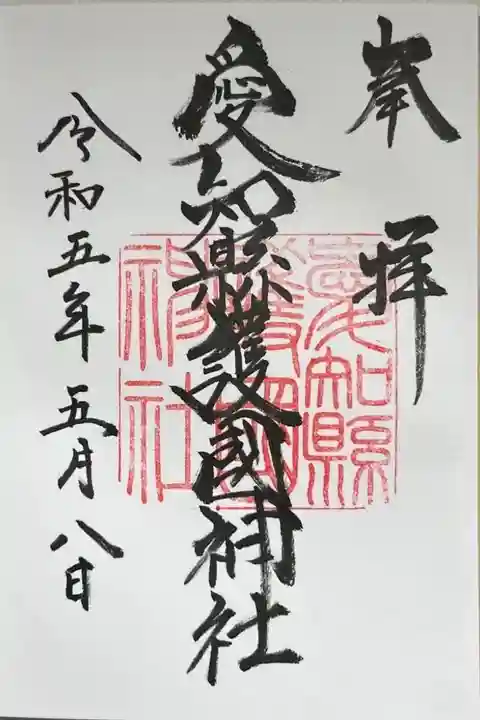 奉拝
愛知縣護國神社
愛知縣護國神社
令和五年五月八日